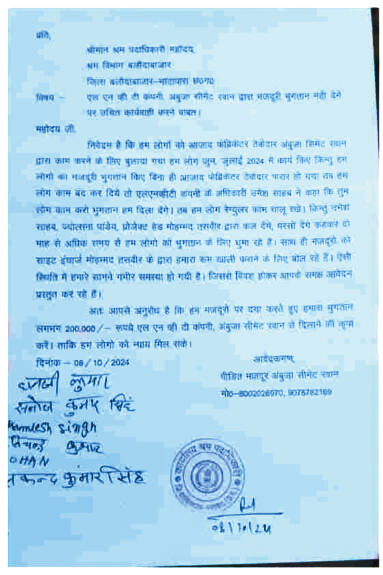 प्रति,
श्रीमान श्रम पदाधिकारी महोदय,
श्रम विभाग बलौदाबाजार
जिला बलौदाबाजार-भाटापारा छ०ग०
विषय – एल एन व्ही टी कंपनी, अंबुजा सीमेंट रवान द्वारा मजदूरी भुगतान नही देने
पर उचित कार्यवाही करने बाबत।
महोदय जी,
निवेदन है कि हम लोगों को आजाद फेब्रिकेटर ठेकेदार अंबुजा सिमेंट रवान
द्वारा काम करने के लिए बुलाया गया हम लोग जुन, जुलाई 2024 में कार्य किए किन्तु हम
लोगों का मजदूरी भुगतान किए बिना ही आजाद फेब्रिकेटर ठेकेदार फरार हो गया तब हम
लोग काम बंद कर दिये तो एलएनव्हीटी कंपनी के अधिकारी उमेश साहब ने कहा कि तुम
लोग काम करो भुगतान हम दिला देंगे। तब हम लोग रेगुलर काम चालू रखे। किन्तु उमेश
साहब, ज्योत्सना पांडेय, प्रोजेक्ट हेड मोहम्मद तसवीर द्वारा कल देंगे, परसो देंगे कहकर दो
माह से अधिक समय से हम लोगों को भुगतान के लिए घुमा रहे हैं। साथ ही मजदूरों का
साइट इंचार्ज मोहम्मद तसवीर के द्वारा हमारा रूम खाली कराने के लिए बोल रहे हैं। ऐसी
स्थिति में हमारे सामने गंभीर समस्या हो गयी है। जिससे विवश होकर आपके समक्ष आवेदन
प्रस्तुत कर रहे हैं।
अतः आपसे अनुरोध है कि हम मजदूरो पर दया करते हुए हमारा भुगतान
लगभग 200,000/- रूपये एल एन व्ही टी कंपनी, अंबुजा सीमेंट रवान से दिलाने की कृपा
करें। ताकि हम लोगों को न्याय मिल सके।
दिनांक – 08/10/2024
आवेदकगण
पीडित मजदूर अंबुजा सीमेंट रवान
मो०-8002026970, 9078782169
कुमार
मनोज कुमार सिंह
Kamlesh Singh
कुमार
OHAN
कुमार सिंह
कार्यालय श्रम पदाधिकारी
08/10/24